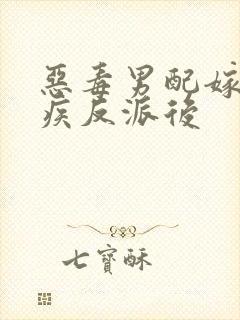 惡毒男配嫁
疾反派後
七寶酥